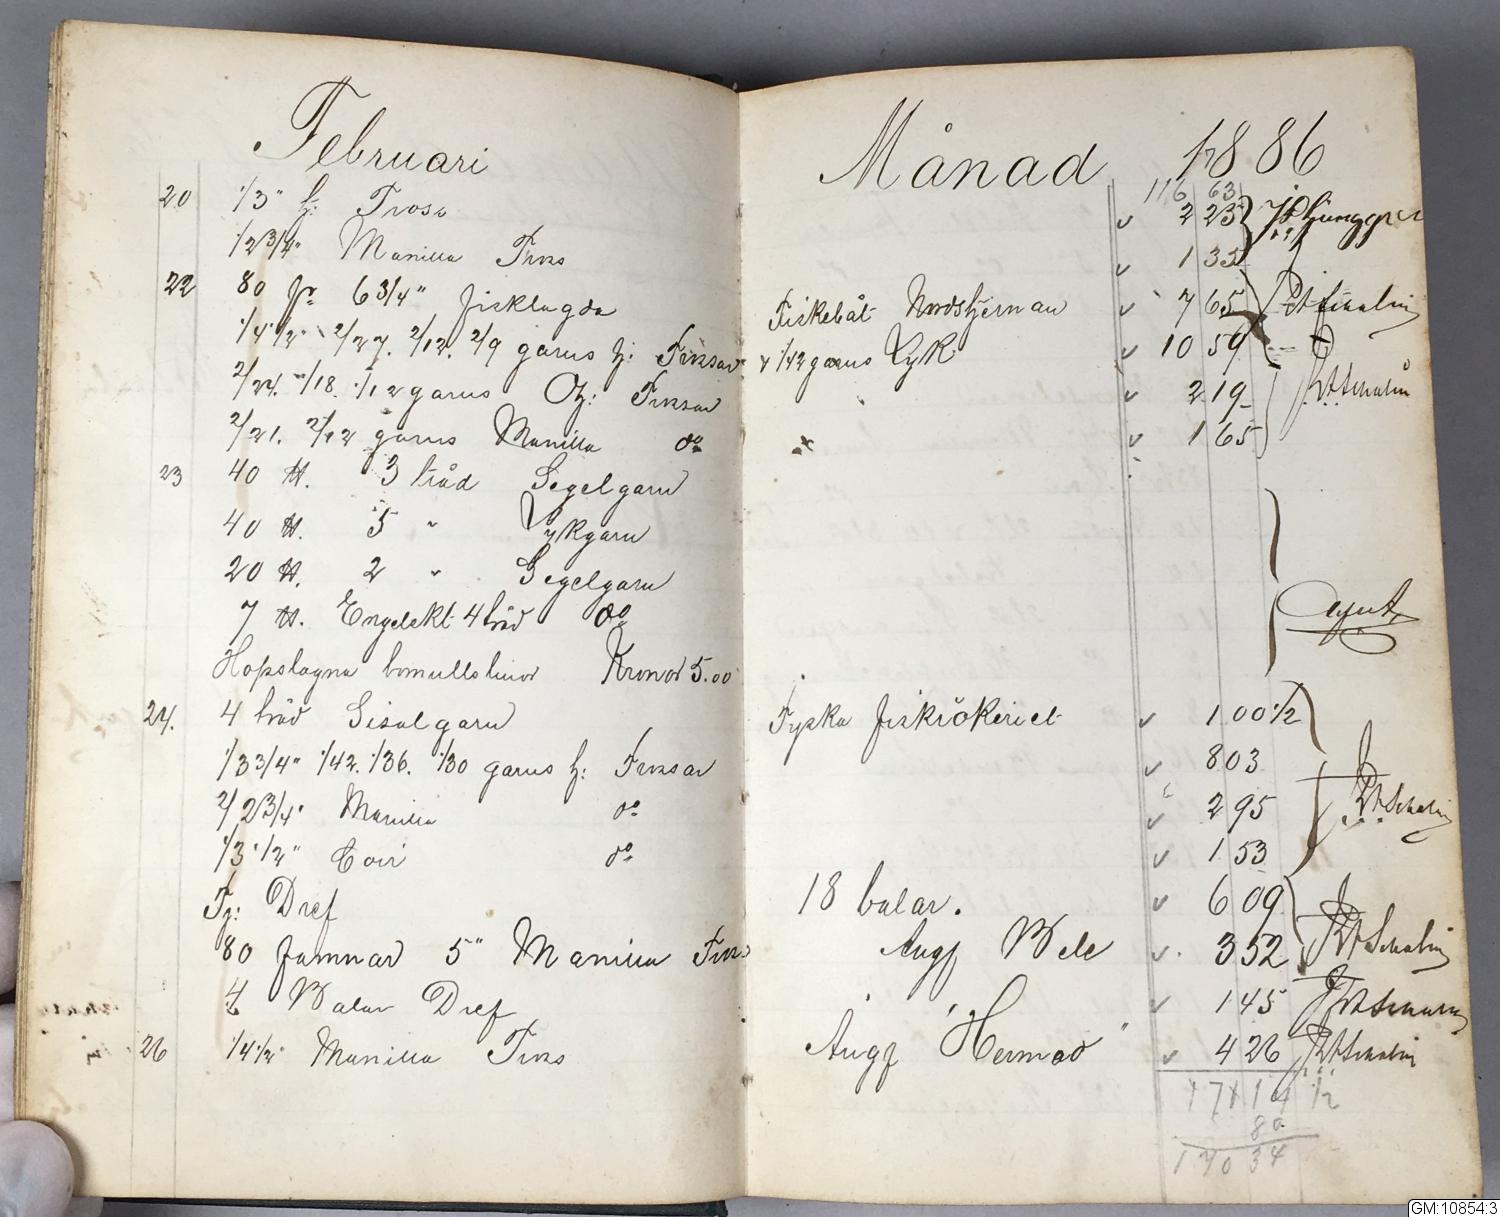 Februari Månad 1886
116 63
20 1/3" h: Tross 2 23 J P Ljunggren
1/2 3/4" Manilla Tross 1 35
22 80 fr 6 3/4" fisklagda Fiskebåt Nordstjernan 7 65
1/4 1/2" 2/27. 2/12. 2/9 garns h: Trossar 1/42 garns Lyk 10 59
2/24. 1/18. 1/12 garns Oh: Trossar 2 19
2/21. 2/12 garns Manilla do 1 65
23 40 tt. 3 tråd Segelgarn
40 tt. 5 " Lykgarn
20 tt. 2 " Segelgarn
7 tt. Engelskt 4 tråd do
Hopslagna bomullslinor Kronor 5.00
24. 4 tråd Sisalgarn Tyska fiskrökeriet 1 00 1/2
1/3 3/4" 1/42. 1/36. 1/30 garns h: Trossar 8 03
2/2 3/4" Manilla do 2 95
1/3 1/2" Coir do 1 53
Tj: Dref 18 balar. 6 09
80 famnar 5" Manilla Tross Angf Bele 3 52
4 Balar Dref 1 45
26 1/4 1/2" Manilla Tross Ångf "Hermod" 4 26
17114 1/2
80
17034
GM:10854:3